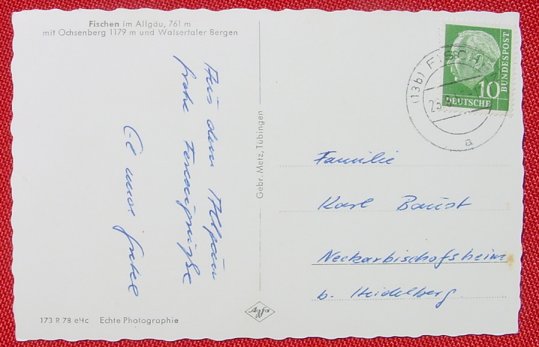 Fischen im Allgäu, 761 m
mit Ochsenberg 1179 m und Walsertaler Bergen
Aus dem Allgäu
frohe Feriengrüße
Gebr. Metz, Tübingen
DEUTSCHE
BUNDESPOST
10
(13b) FISCHEN
a
Familie
Karl Baust
Neckarbischofsheim
b. Heidelberg
173 R 78 eHc Echte Photographie
Agfa